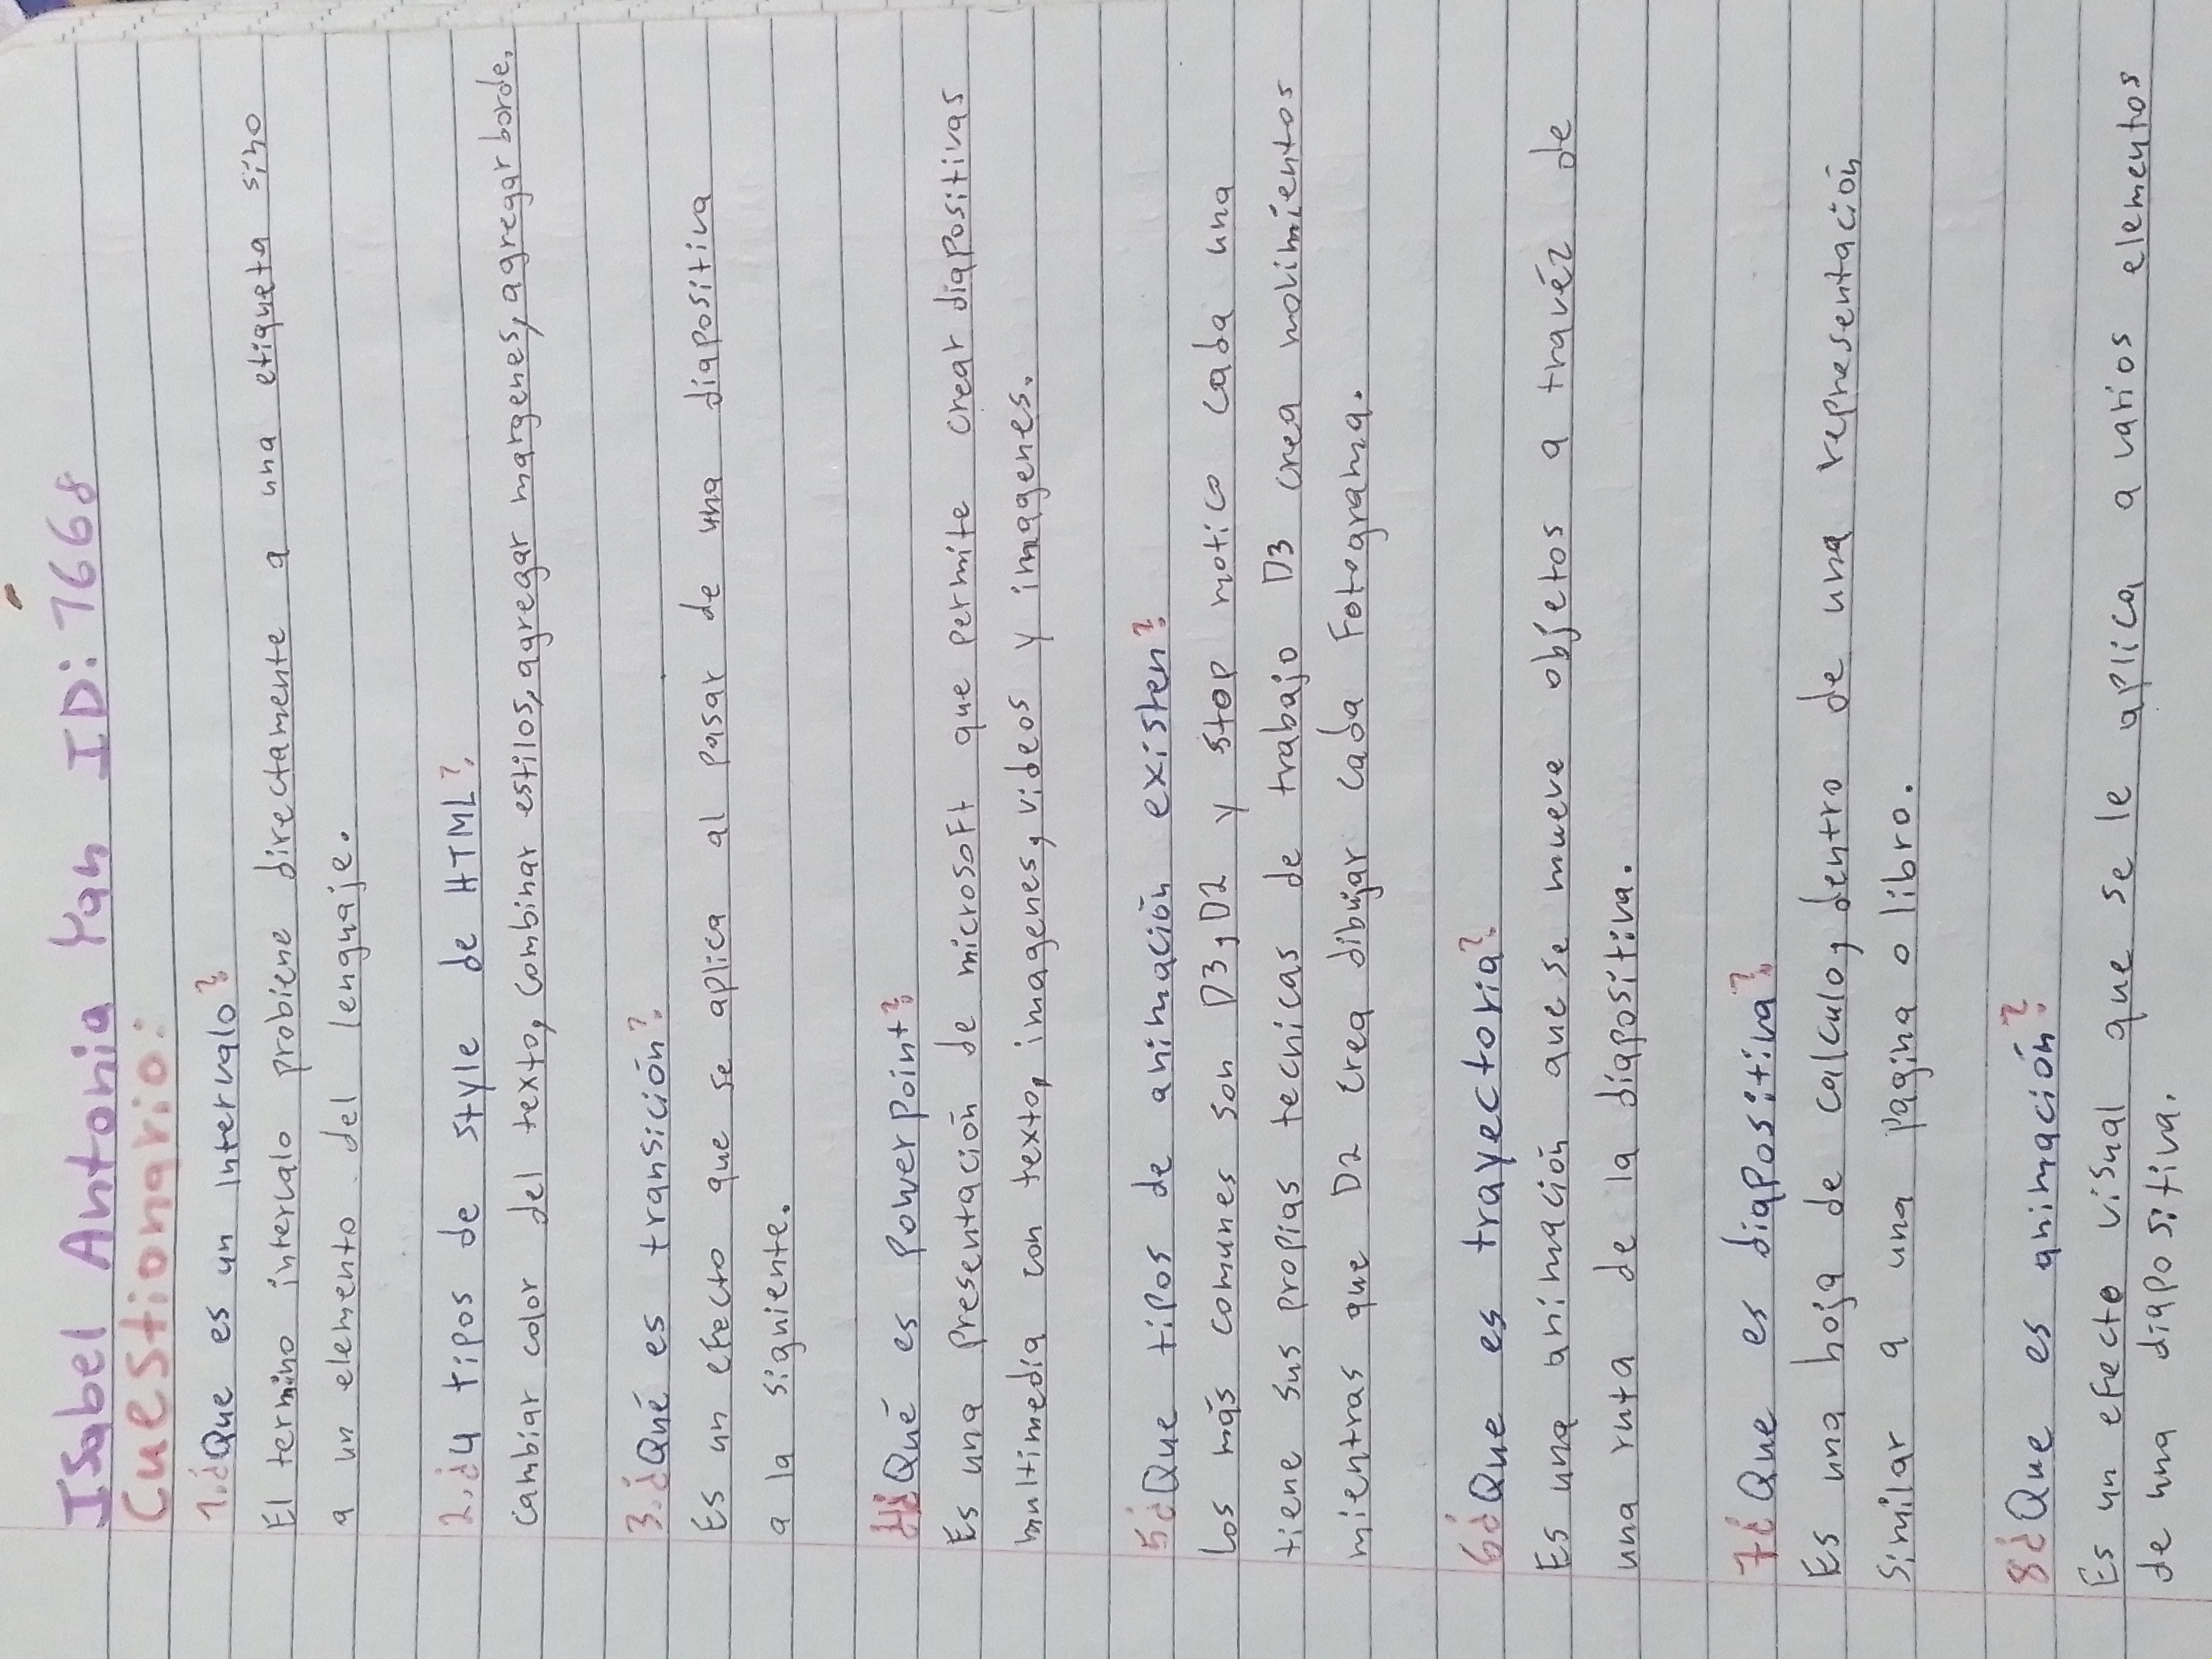 Isabel Antonia Yah ID: 7668
Cuestionario:
1.¿Que es un Intervalo?
El termino intervalo probiene directamente a una etiqueta sino
a un elemento del lenguaje.
2.¿4 tipos de style de HTML?
Cambiar color del texto, combinar estilos, agregar margenes, agregar borde.
3.¿Qué es transición?
Es un efecto que se aplica al pasar de una diapositiva
a la siguiente.
4¿Qué es PowerPoint?
Es una presentación de microsoft que permite crear diapositivas
multimedia con texto, imagenes, videos y imagenes.
5¿Que tipos de animación existen?
Los más comunes son D3, D2 y stop motico cada una
tiene sus propias tecnicas de trabajo D3 crea movimientos
mientras que D2 crea dibujar cada Fotograma.
6¿Que es trayectoria?
Es una animación que se mueve objetos a travéz de
una ruta de la diapositiva.
7¿Que es diapositiva?
Es una hoja de calculo, dentro de una representación
Similar a una pagina o libro.
8¿Que es animación?
Es un efecto visual que se le aplica a varios elementos
de una diapositiva.